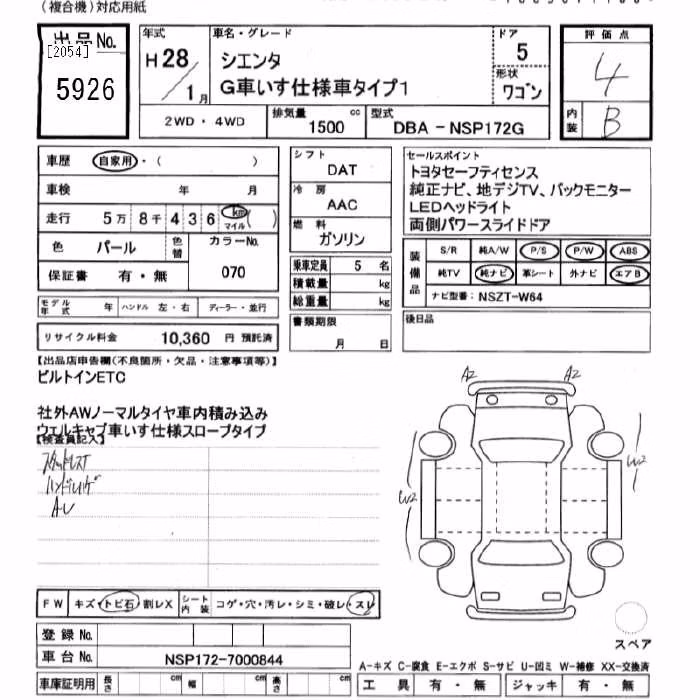 (複合機)対応用紙
出品No.
[2054]
5926
年式
H28/1月
車名・グレード
シエンタ
G車いす仕様車タイプ1
ドア
5
形状
ワゴン
評価点
4
内装
B
2WD・4WD
排気量
1500
cc
型式
DBA-NSP172G
車歴
自家用・( )
車検
年 月
走行
5万8千436
km
マイル
( )
色
パール
色替
カラーNo.
070
保証書
有・無
シフト
DAT
冷房
AAC
燃料
ガソリン
乗車定員 5 名
積載量 kg
総重量 kg
セールスポイント
トヨタセーフティセンス
純正ナビ、地デジTV、バックモニター
LEDヘッドライト
両側パワースライドドア
装備品
S/R 純A/W P/S P/W ABS
純TV 純ナビ 革シート 外ナビ エアB
ナビ型番: NSZT-W64
モデル年式 年 ハンドル 左・右 ディーラー・並行
リサイクル料金 10,360 円 預託済
書類期限
月 日
後日品
【出品店申告欄(不良箇所・欠品・注意事項等)】
ビルトインETC
社外AWノーマルタイヤ車内積み込み
ウェルキャブ車いす仕様スロープタイプ
【検査員記入】
A2
A2
W2
W2
FW キズ・トビ石・割レX
シート内装 コゲ・穴・汚レ・シミ・破レ・スレ
登録No.
車台No. NSP172-7000844
車庫証明用 長さ cm 幅 cm 高さ cm
スペア
A-キズ C-腐食 E-エクボ S-サビ U-凹ミ W-補修 XX-交換済
工具 有・無 ジャッキ 有・無